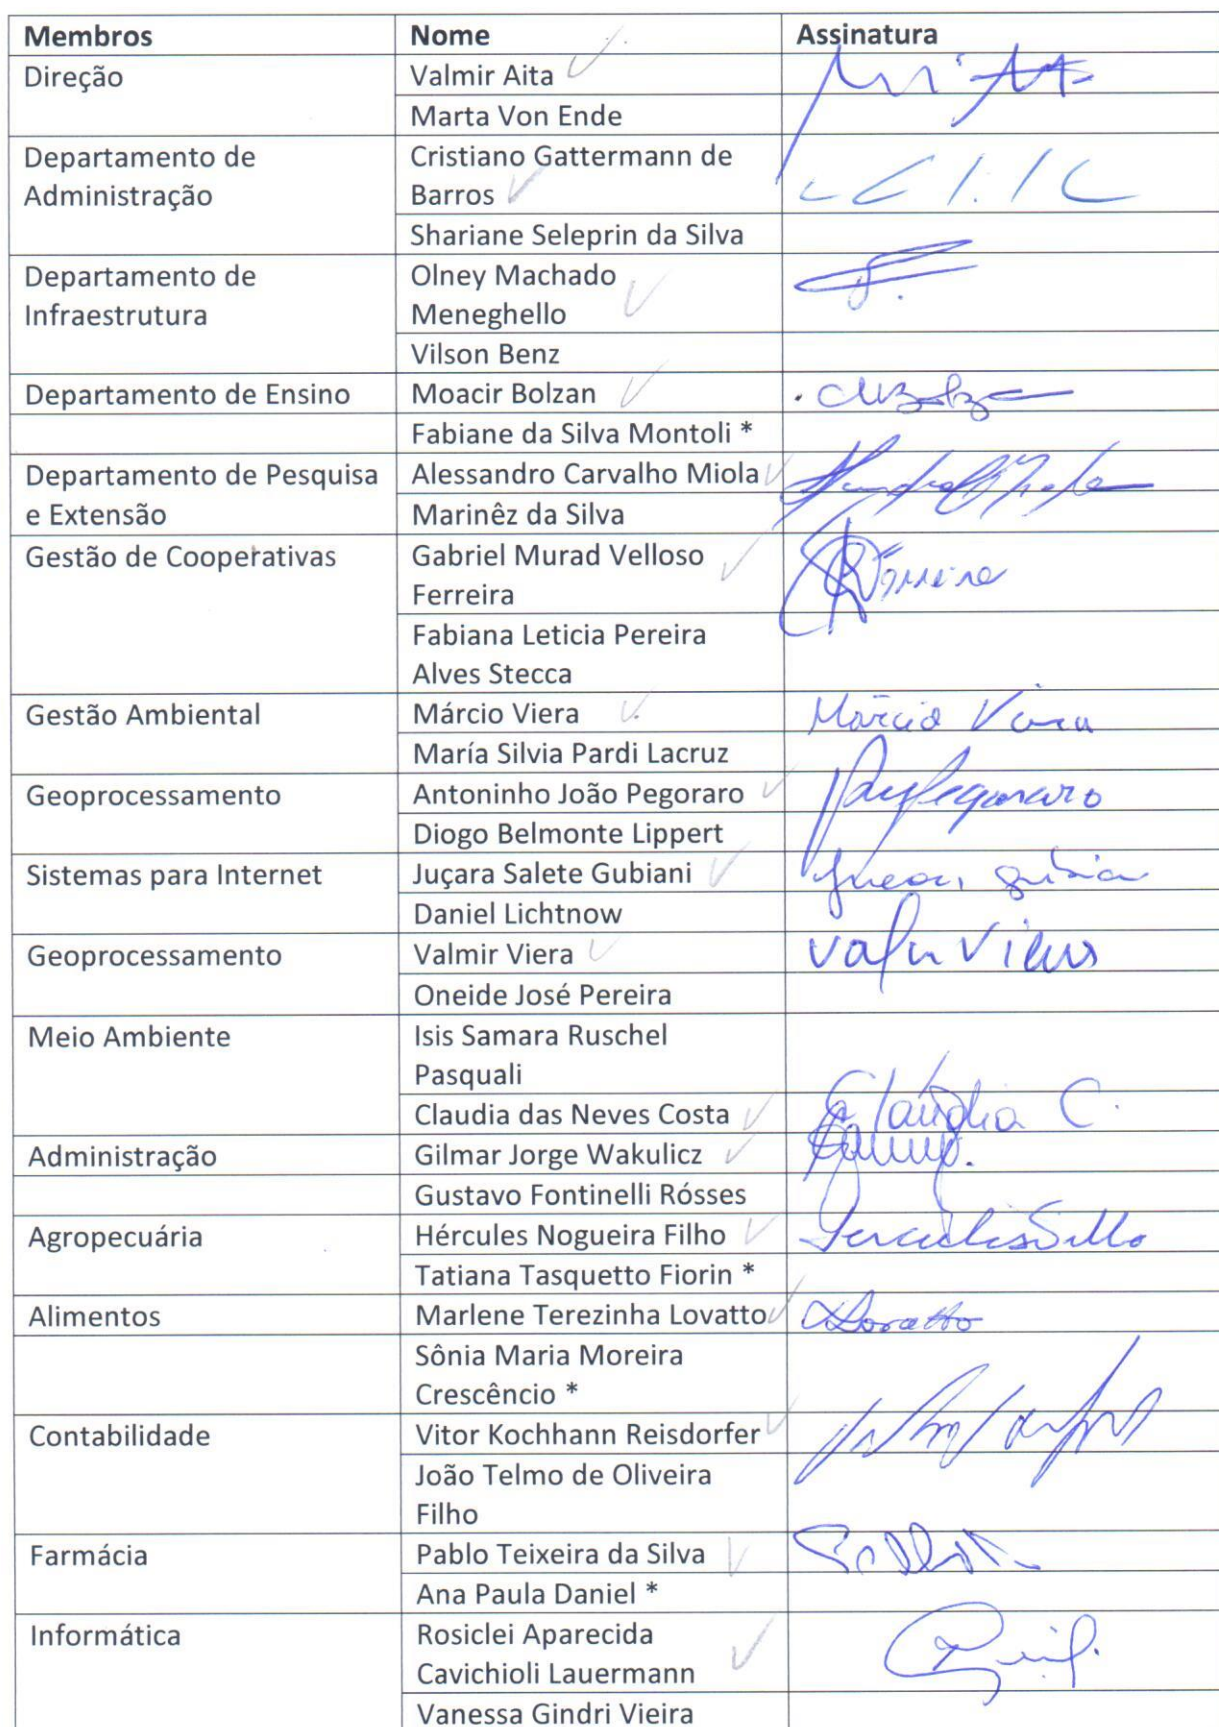 Membros Nome Assinatura
Direção Valmir Aita
Marta Von Ende
Departamento de Cristiano Gattermann de
Administração Barros
Shariane Seleprin da Silva
Departamento de Olney Machado
Infraestrutura Meneghello
Vilson Benz
Departamento de Ensino Moacir Bolzan
Fabiane da Silva Montoli *
Departamento de Pesquisa Alessandro Carvalho Miola
e Extensão Marinêz da Silva
Gestão de Cooperativas Gabriel Murad Velloso
Ferreira
Fabiana Leticia Pereira
Alves Stecca
Gestão Ambiental Márcio Viera Márcio Viera
María Silvia Pardi Lacruz
Geoprocessamento Antoninho João Pegoraro
Diogo Belmonte Lippert
Sistemas para Internet Juçara Salete Gubiani
Daniel Lichtnow
Geoprocessamento Valmir Viera
Oneide José Pereira
Meio Ambiente Isis Samara Ruschel
Pasquali
Claudia das Neves Costa Cláudia C.
Administração Gilmar Jorge Wakulicz
Gustavo Fontinelli Rósses
Agropecuária Hércules Nogueira Filho
Tatiana Tasquetto Fiorin *
Alimentos Marlene Terezinha Lovatto
Sônia Maria Moreira
Crescêncio *
Contabilidade Vitor Kochhann Reisdorfer
João Telmo de Oliveira
Filho
Farmácia Pablo Teixeira da Silva
Ana Paula Daniel *
Informática Rosiclei Aparecida
Cavichioli Lauermann
Vanessa Gindri Vieira